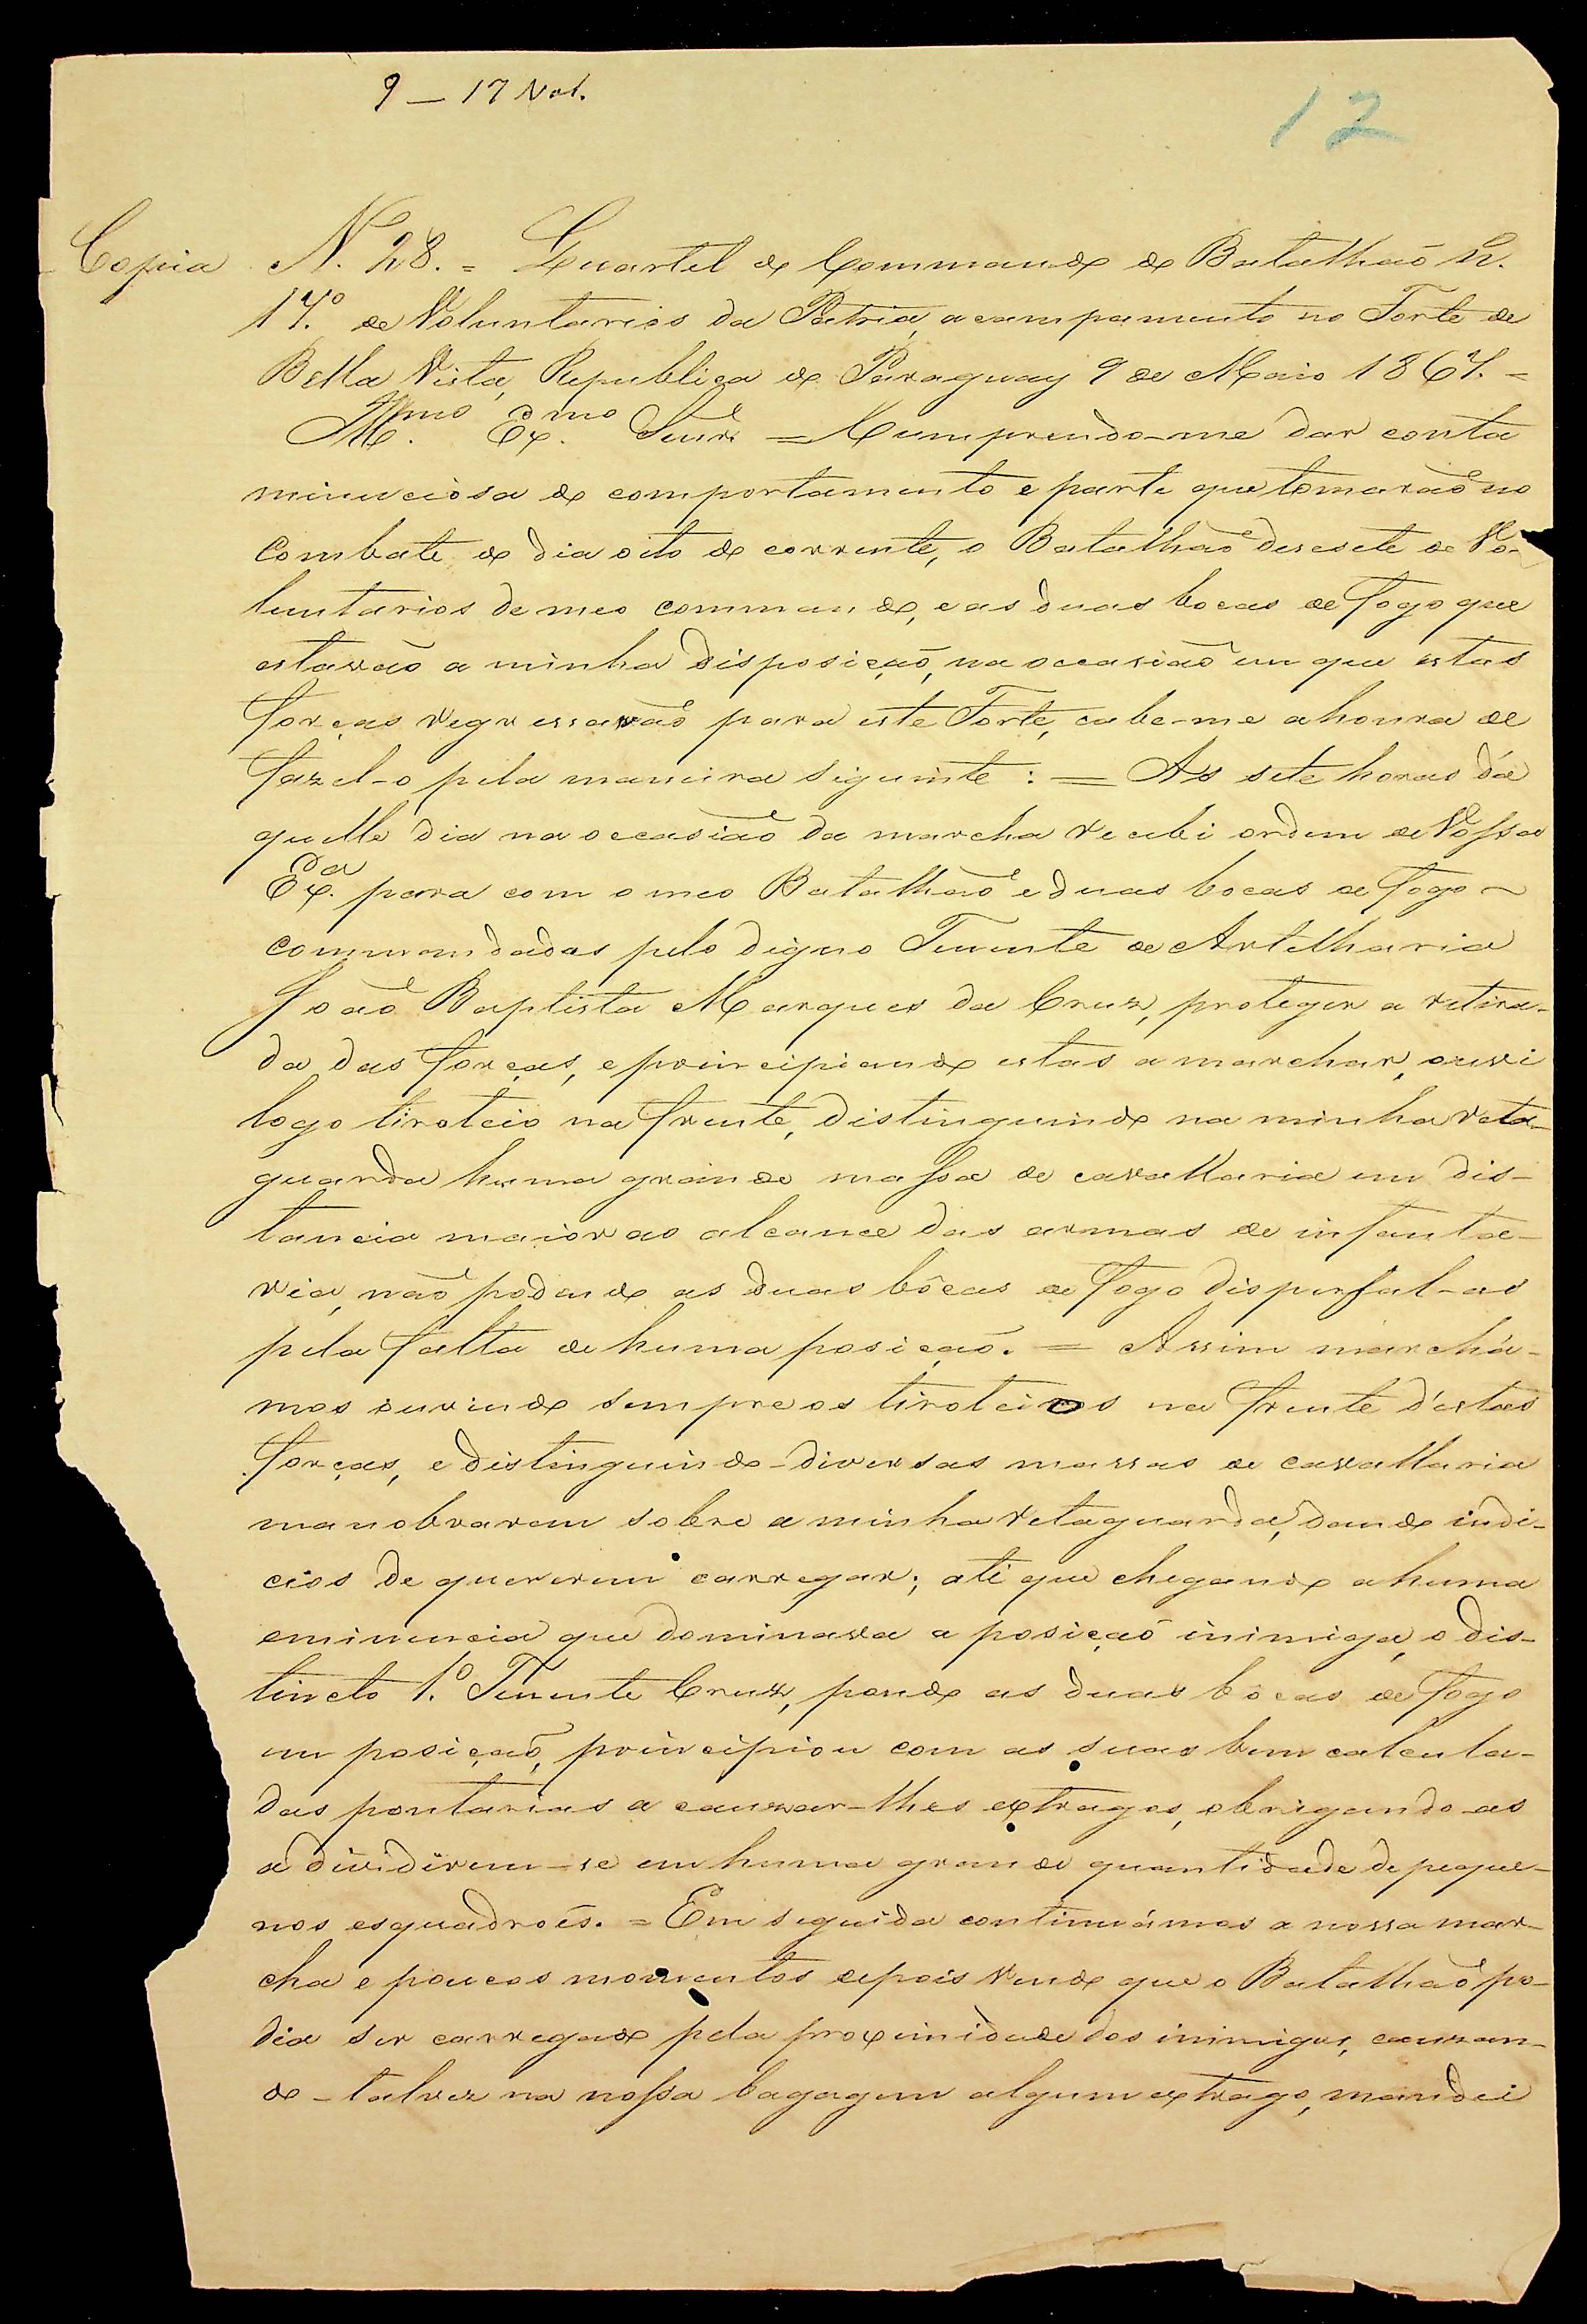 9 — 17 Vol.
12
Copia N. 28. = Quartel do Commando do Batalhaõ N.
17.º de Voluntarios da Patria, acampamento no Forte de
Bella Vista, Republica do Paraguay 9 de Maio 1867. =
Ill.mo Ex.mo Senr. = Cumprendo-me dar conta
minuciosa do comportamento e parte que tomaraõ no
combate do dia oito do corrente, o Batalhaõ desesete de Vo-
luntarios de meo commando, e as duas bocas de fogo que
estavaõ a minha disposiçaõ, na occasiaõ em que estas
forças regressavaõ para este Forte, cabe-me a honra de
fazel-o pela maneira siguinte : = As sete horas d'a
quelle dia na occasiaõ da marcha recebi ordem de Vossa
Ex.da para com o meo Batalhaõ e duas bocas de fogo ~
commandadas pelo digno Tenente de Artilharia
Joaõ Baptista Marques da Cruz, proteger a retira-
da das forças, e principiando estas a marchar, ouvi
logo tiroteio na frente, distinguindo na minha reta-
guarda huma grande massa de cavallaria em dis-
tancia maior ao alcance das armas de infanta-
ria, naõ podendo as duas bôcas de fogo dispersal-as
pela falta de huma posiçaõ. = Assim marchá-
mos ouvindo sempre os tiroteios na frente d'estas
forças, e distinguindo-diversas massas de cavallaria
manobrarem sobre a minha retaguarda, dando indi-
cios de quererem carregar; até que chegando a huma
eminencia que dominava a posiçaõ inimiga, o dis-
tincto 1.º Tenente Cruz, pondo as duas bôcas de fogo
em posiçaõ, principiou com as suas bem calcula-
das pontarias a cauzar-lhes extragos, obrigando-as
a dividirem-se em huma grande quantidade de peque-
nos esquadroẽs. = Em seguida continuámos a nossa mar-
cha e poucos momentos depois vendo que o Batalhaõ po-
dia ser carregado pela proximidade dos inimigos, cauzan-
do-talvez na nossa bagagem algum extrago, mandei